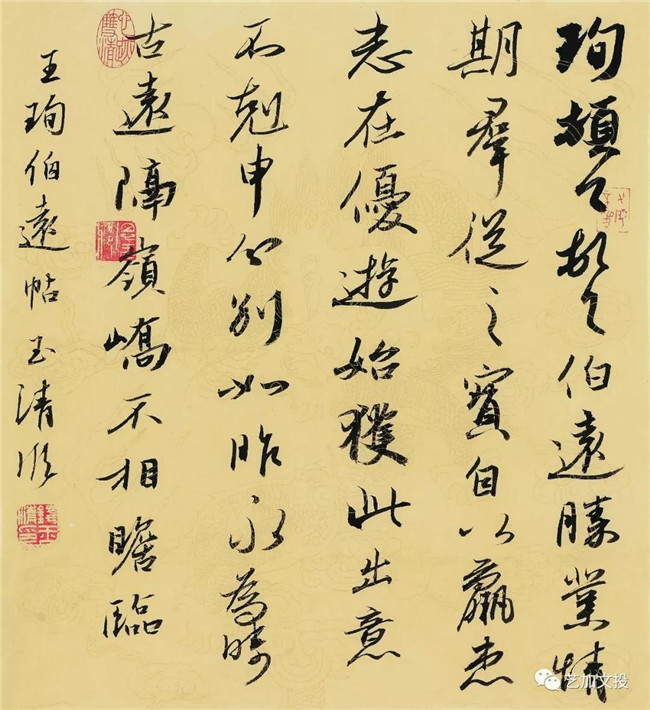 珣頓首頓首伯遠勝業情
期羣從之寶自以羸患
志在優遊始獲此出意
不剋申分別如昨永為疇
古遠隔嶺嶠不相瞻臨
王珣伯遠帖 玉清
艺加文投